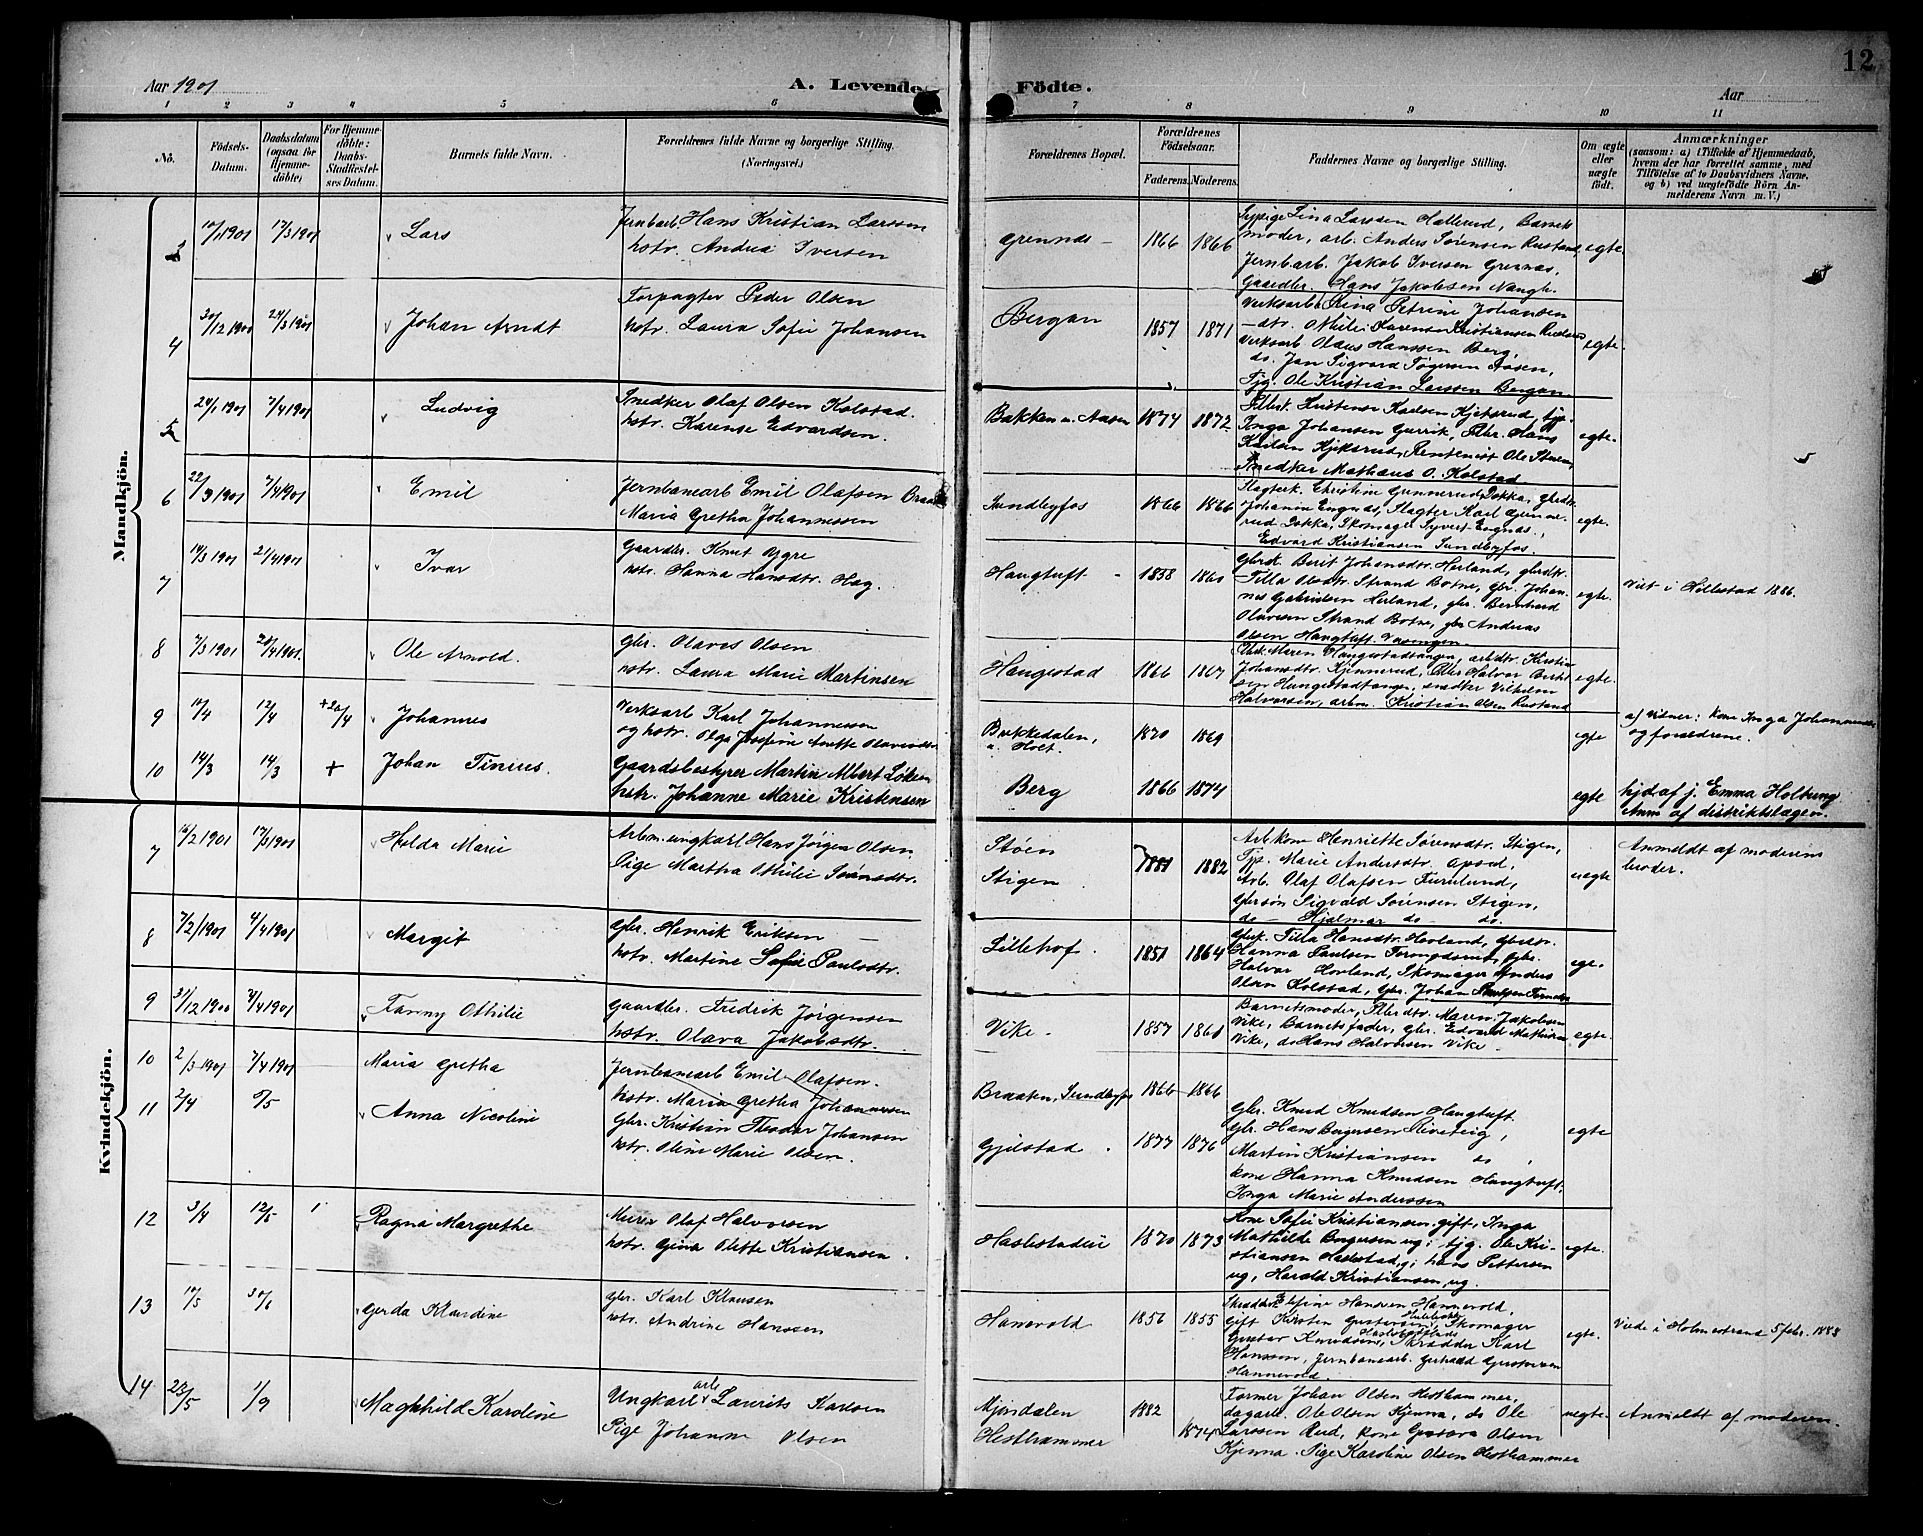 12
Aar 1901
A. Levende
Födte.
Aar
1 2 3 4 5 6 7 8 9 10 11
No.
Födsels-
Datum.
Daabsdatum
(ogsaa for
Hjemme-
döbte)
For Hjemme-
döbte:
Daabs-
Stadfæstel-
ses Datum.
Barnets fulde Navn.
Forældrenes fulde Navne og borgerlige Stilling.
(Næringsvei.)
Forældrenes Bopæl.
Forældrenes
Födselsaar.
Faderens.
Moderens.
Faddernes Navne og borgerlige Stilling.
Om ægte
eller
uægte
födt.
Anmærkninger
(saasom: a) i Tilfælde af Hjemmedaab,
hvem der har forrettet samme, med
Tilföielse af to Daabsvidners Navne,
og b) ved uægtefödte Börn An-
melderens Navn m. V.)
Mandkjön.
3 17/3 1901 Lars
Jernbarb. Hans Kristian Larssen
hstr. Andrea Iversen
Grennes 1866 1866
Sypige Lina Larssen Hallerud, Barnets
moder, arb. Anders Sørensen Rustand,
Jernbarb. Jakob Iversen Grennes,
Gaardbr. Hans Jakobsen Haugb.
egte.
4 30/12 1900 24/3 1901 Johan Arndt
Forpagter Peder Olsen
hstr. Laura Sofie Johansen
Bergan 1857 1871
Petrine Johansen
Verksarb Olaus Hanssen Berg,
ds. Jan Sigvard Tøgersen Aasen,
Tjg. Ole Kristian Larssen Bergan
egte.
5 24/1 1901 7/4 1901 Ludvig
Snedker Olaf Olsen Kolstad.
hstr. Karense Edvardsen.
Bakken u. Aasen 1874 1872
Inga Johansen Gurrik,
Snedker Mathæus O. Kolstad
egte.
6 22/3 1901 7/4 1901 Emil
Jernbanearb Emil Olafsen Braaten
Maria Gretha Johannessen
Sundbyfos 1866 1866
Johanne Engnæs, Slagter Karl Gunne-
rud Dokka, Skomager Syvert Engnæs,
Edvard Kristiansen Sundbyfos.
egte.
7 14/3 1901 21/4 1901 Ivar
Gaardbr. Knut Ygre
hstr. Hanna Hansdtr. Hag.
Haugtuft 1858 1860
Gbrsk. Berit Johansdtr. Herland, gbrdtr.
Tilla Olesdtr. Strand Botne, gbr. Johan-
nes Gabrielsen Herland, gbr. Bernhard
Olavesen Strand Botne, gbr Andreas
Olsen Haugtuft.
egte.
Viet i Hillestad 1886.
8 7/3 1901 28/4 1901. Ole Arnold.
Gbr. Olaves Olsen
hstr. Laura Marie Martinsen
Haugestad 1866 1867
Maren Haugestadtangen, arbdtr. Kirstin
Johansdtr. Kjennerud, Halvor Bertel-
sen Haugestadtangen, snedker Vilhelm
Halvorsen, arbm. Kristian Olsen Rustand
egte.
9 12/4 +20/4 Johannes
Verksarb Karl Johannessen
og hstr. Olga Josefine Anette Olavesdtr.
Bækkedalen,
u. Holt. 1870 1869
egte
af Vidner: Kone Inga Johannesdtr
og forældrene.
10 14/3 14/3 + Johan Tinius.
Gaardsbestyrer Martin Albert Løken
hstr. Johanne Marie Kristensen
Berg 1866 1874
egte
hjd af j. Emma Holtung
Anm af distriktslægen.
Kvindekjön.
7 16/2 1901 17/3 1901 Helda Marie
Arbm. ungkarl Hans Jørgen Olsen
Pige Martha Othilie Sørensdtr.
Støen
Stigen 1881 1882
Arbkone Henriette Sørensdtr. Stigen,
Tjp. Marie Andersdtr.
Arb. Olaf Olafsen Furulund,
Gbrsøn Sigvald Sørensen Stigen,
ds — Hjalmar ds — ds.
uegte
Anmeldt af moderens
broder.
8 7/2 1901 4/4 1901 Margit
Gbr. Henrik Eriksen
hstr. Martine Sofie Paulsdtr.
Lillehof. 1851 1864
Gbrsk. Tilla Hansdtr. Hovland,
Hanna Paulsen
Halvor Hovland, Skomager Anders
Olsen Kolstad, Gbr. Johan
9 31/12 1900 4/4 1901 Fanny Othilie
Gaardbr. Fredrik Jørgensen
hstr. Olava Jakobsdtr.
Vike. 1857 1861
Barnetsmoder, Maren Jakobsen
Vike, Barnets fader, gbr. Edvard Mathisen
Vike, ds Hans Halvorsen Vike
egte.
10 2/3 1901 7/4 1901 Maria Gretha
Jernbanearb Emil Olafsen.
hstr. Maria Gretha Johannessen
Braaten, Sundbyfos 1866 1866
11 2/4 Anna Nicoline
Gbr. Kristian Theodor Johansen
hstr. Oline Marie Olsen.
Gjilstad. 1877 1876
Gbr. Knud Knudsen Haugtuft.
Gbr. Hans Borgersen
Martin Kristiansen ds,
kone Hanna Knudsen Haugtuft,
Inga Marie Anderssen
egte
12 3/4 12/5 Ragna Margrethe
Murer Olaf Halvorsen
hstr. Gina Olette Kristiansen.
Haslestadeie 1870 1873
Kone Sofie Kristiansen, gift, Inga
Mathilde Borgersen ug; tjg. Ole Kri-
stiansen Haslestad, g; hans Pettersen
ug, Harald Kristiansen, ug.
egte.
13 30/6 Gerda Klaudine
Gbr. Karl Klausen
hstr. Andrine Hanssen
Hanevold 1856 1855
Hansen Hannevold,
Gift Kirsten Gustavsen, Skomager
Gustav Knudsen, Skrædder Karl
Hanssen, Jernbanearb.
Hannevold.
egte.
Viede i Holmestrand 5 febr. 1883
14 23/5 1/9 Maghhild Karoline
Ungkarl arb Laurits Karlsen
Pige Johanne Olsen
Mjøndalen
Hesthammer 1882 1874
Former Johan Olsen Hesthammer,
dagarb. Ole Olsen Kjenna, ds Ole
Larssen Rud, Kone Gustava Olsen
Kjenna. Pige Karoline Olsen Hesthammer
uegte.
Anmeldt af moderen.